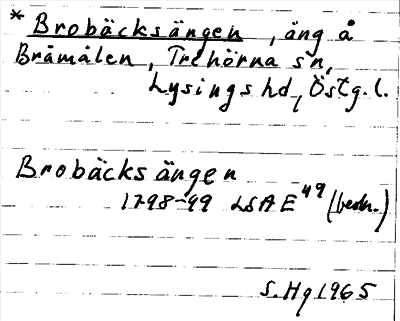 * Brobäcksängen, äng å
Bråmålen, Trehörna sn,
Lysings hd, Östg.l.
Brobäcksängen
1798-99 LSA E 49 (beskr.)
S.Hg 1965